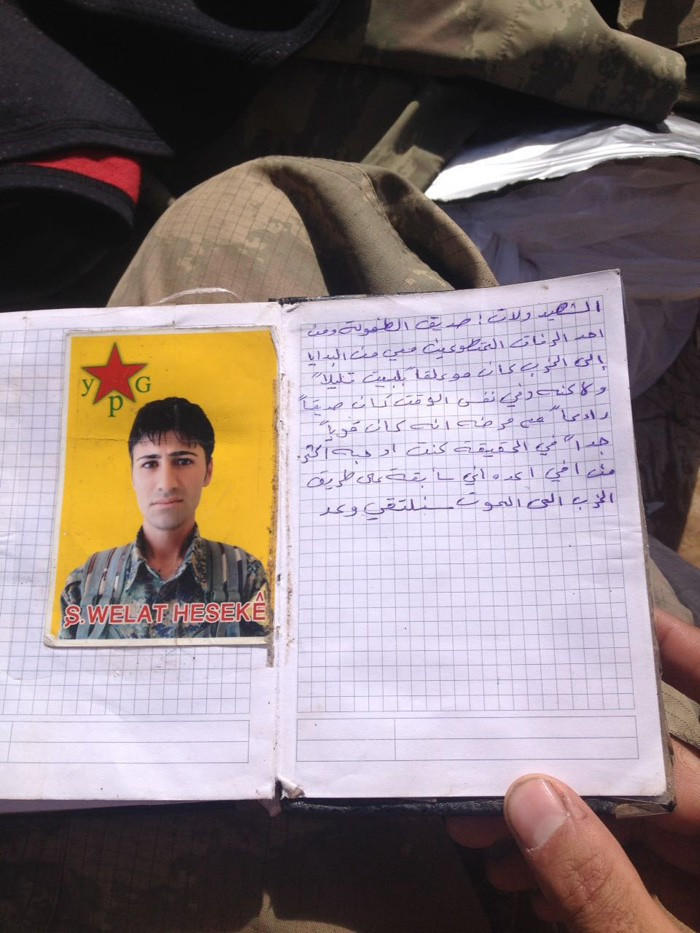 YPG
Ş.WELAT HESEKÊ
الشهيد ولات ! صديق الطفولة ومن
احد الرفاق المتطوعين معي من البدايا
إلى الحزب كان موعلقاً بالبيت قليلاً
ولاكنه وفي نفس الوقت كان صديقاً
رادعاً مع مرضه انه كان قوياً
جداً في الحقيقة كنت اوحبه اكثر
من اخي اعده اني سأبقة على طريق
الحزب الى الموت سنلتقي وعد